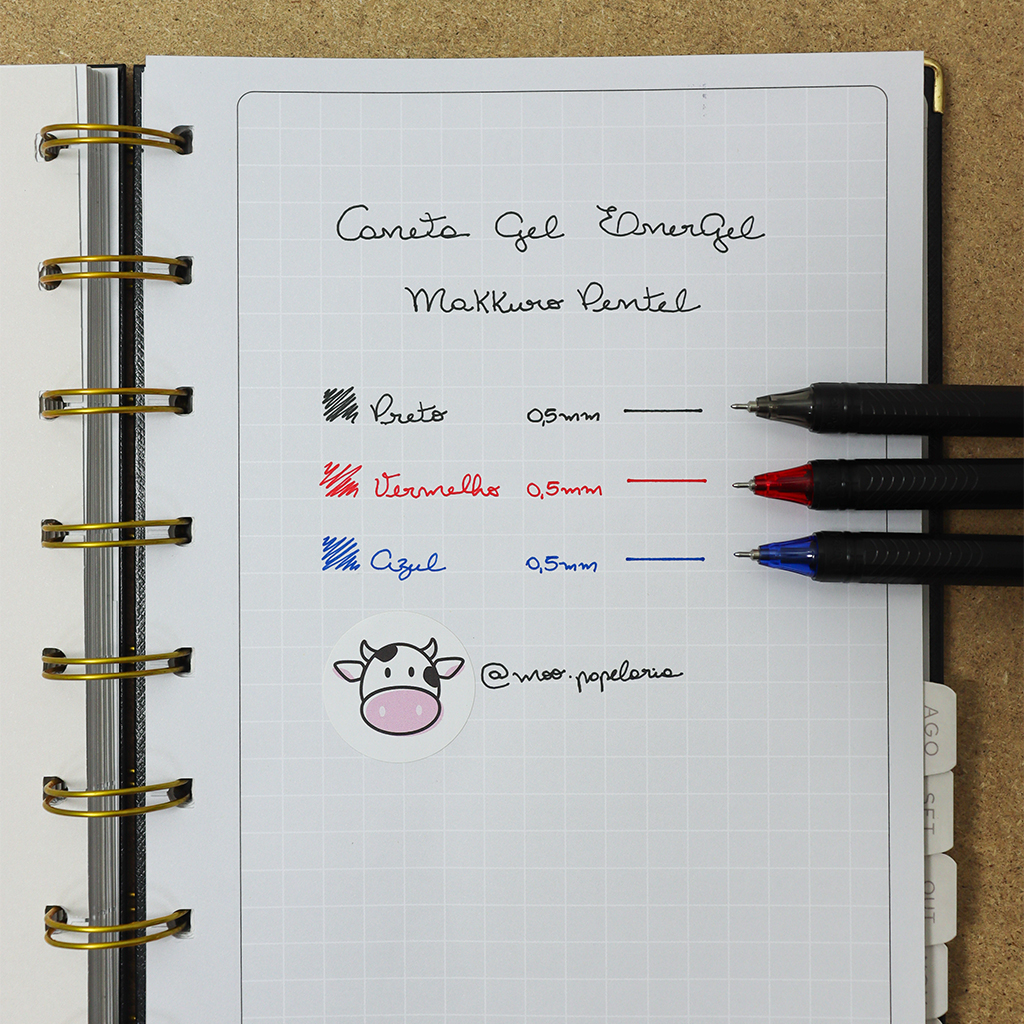 Caneta Gel EnerGel
Makkuro Pentel
Preto 0,5mm
Vermelho 0,5mm
Azul 0,5mm
@moo.papelaria
AGO
SET
OUT